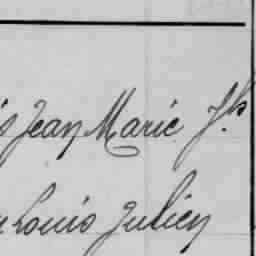 Jean Marie fs
Louis Julien